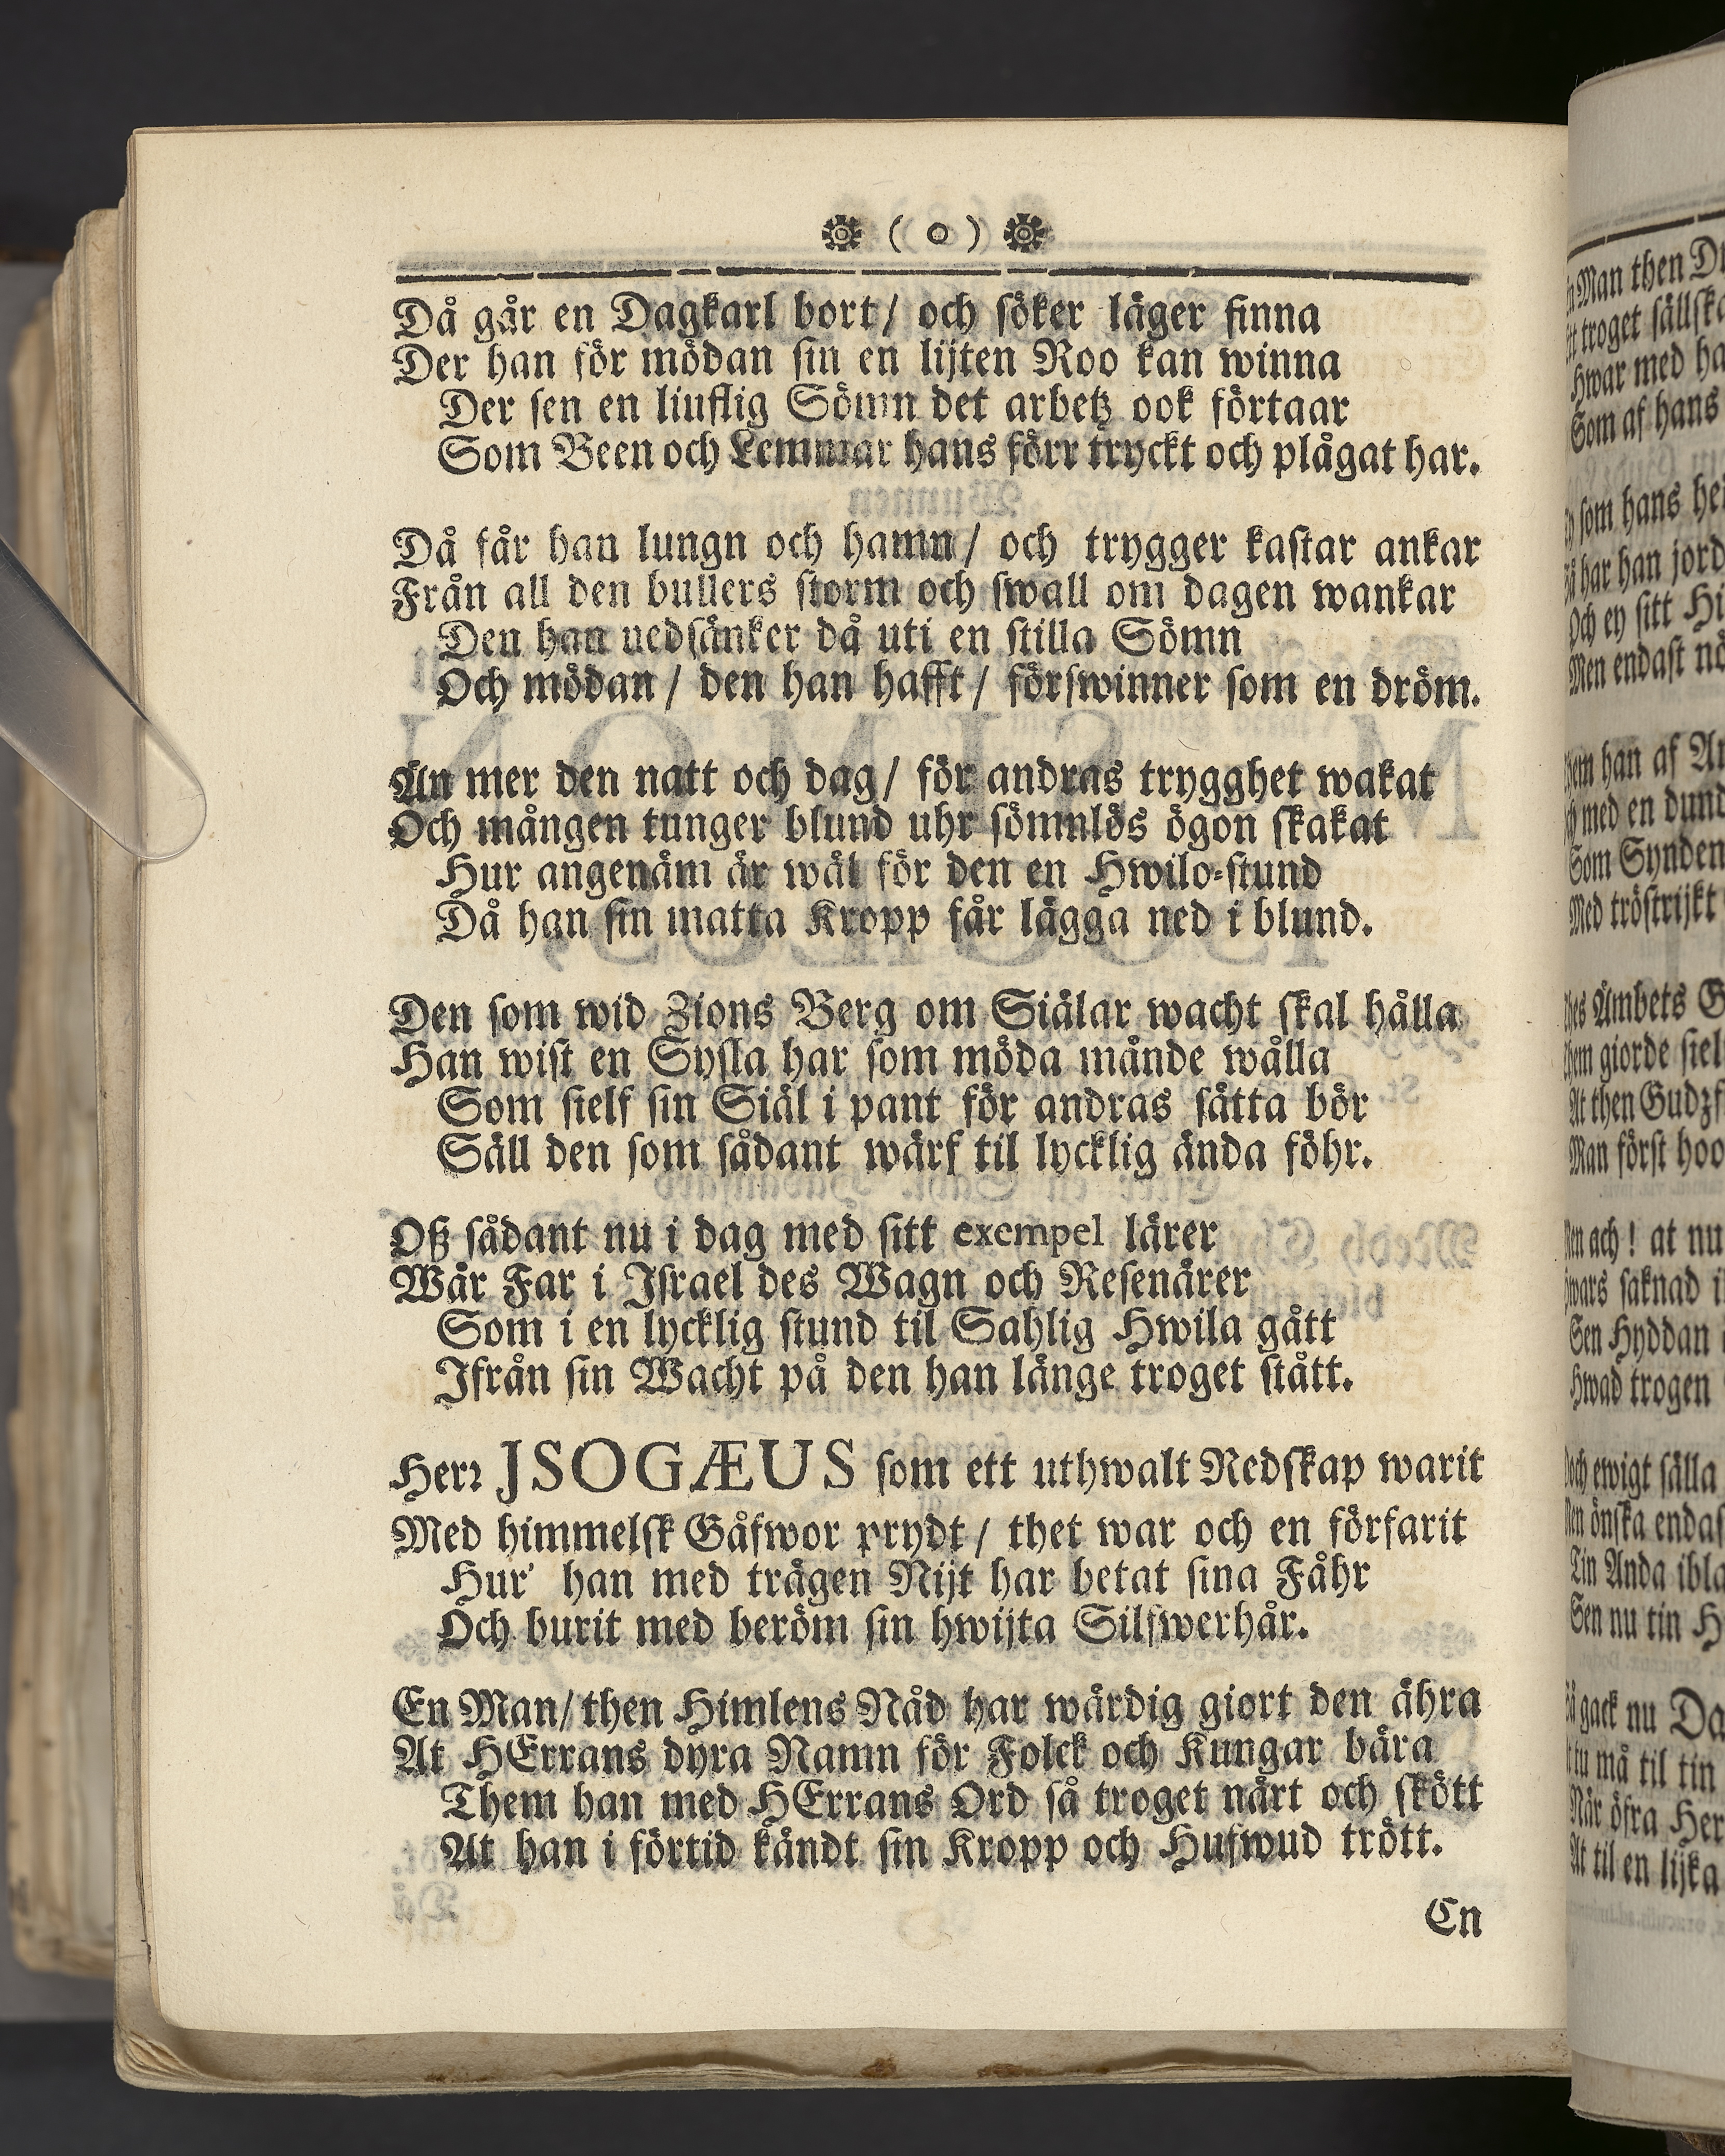 ( o )
Då går en Dagkarl bort/ och söker läger finna
Der han för mödan sin en lijten Roo kan winna
Der sen en liuflig Sömn det arbetz ook förtaar
Som Been och Lemmar hans förr tryckt och plågat har.
Då får han lungn och hamn/ och trygger kastar ankar
Från all den bullers storm och swall om dagen wankar
Den han nedsänker då uti en stilla Sömn
Och mödan/ den han hafft/ förswinner som en dröm.
Än mer den natt och dag/ för andras trygghet wakat
Och mången tunger blund uhr sömnlös ögon skakat
Hur angenäm är wäl för den en Hwilo-stund
Då han sin matta Kropp får lägga ned i blund.
Den som wid Zions Berg om Siälar wacht skal hålla
Han wist en Sysla har som möda månde wålla
Som sielf sin Siäl i pant för andras sätta bör
Säll den som sådant wärf til lycklig ända föhr.
Oß sådant nu i dag med sitt exempel lärer
Wår Far i Israel des Wagn och Resenärer
Som i en lycklig stund til Sahlig Hwila gått
Ifrån sin Wacht på den han länge troget stått.
Herr JSOGÆUS som ett uthwalt Redskap warit
Med himmelsk Gåfwor prydt/ thet war och en förfarit
Hur' han med trägen Nijt har betat sina Fåhr
Och burit med beröm sin hwijta Silfwerhår.
En Man/ then Himlens Nåd har wärdig giort den ähra
At HErrans dyra Namn för Folck och Kungar bära
Them han med HErrans Ord så troget närt och skött
At han i förtid kändt sin Kropp och Hufwud trött.
En
Man then
troget
Hwar med
Som af hans
som hans
har han jord
Och ey sitt
Men endast
han af
med en dund
Som Synden
Med tröstrijkt
Ämbets
giorde
At then
Man först
ach! at nu
saknad
Sen Hyddan
Hwad trogen
ewigt sälla
önska
Tin Anda
Sen nu tin
gack nu
tu må til tin
När öfra
At til en lijka